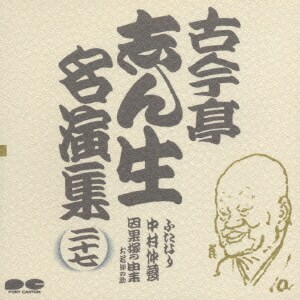 古今亭
志ん生
名演集
二十七
ふたなり
中村仲蔵
因果塚の由来
お若伊之助
PONY CANYON